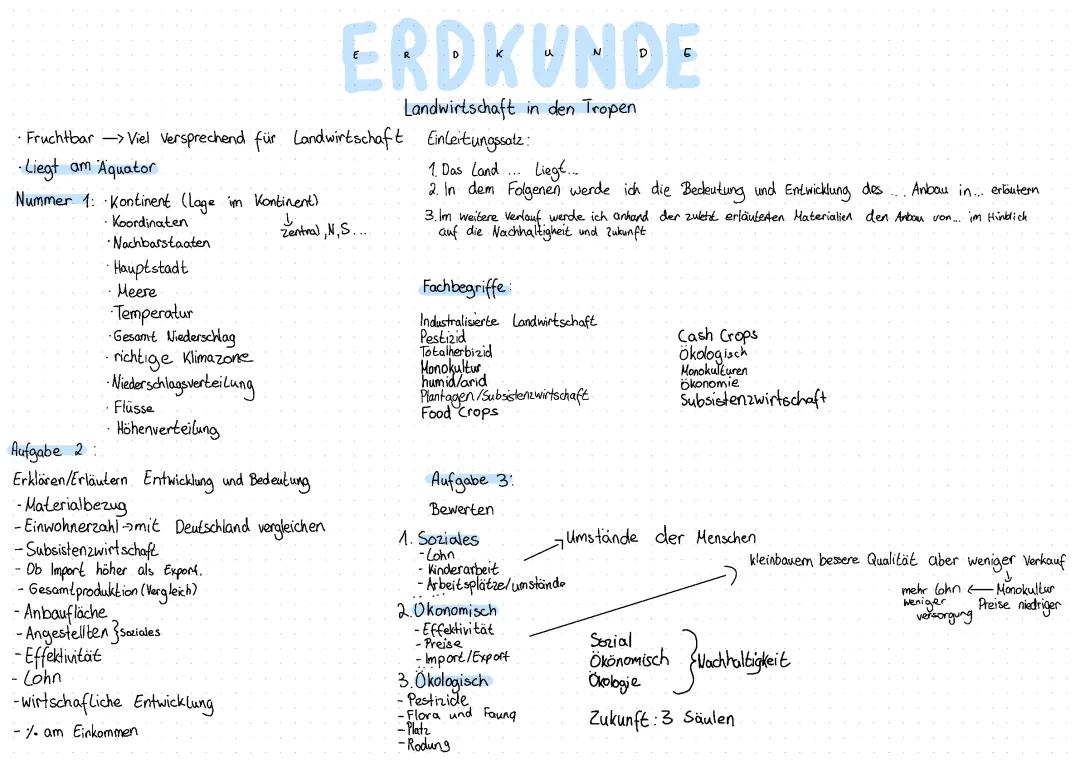 ERDKUNDE
E R D K U N D E
Landwirtschaft in den Tropen
· Fruchtbar → Viel versprechend für Landwirtschaft
· Liegt am Äquator
Nummer 1: · Kontinent (Lage im Kontinent)
↓
zentral, N, S...
· Koordinaten
· Nachbarstaaten
· Hauptstadt
· Meere
· Temperatur
· Gesamt Niederschlag
· richtige Klimazone
· Niederschlagsverteilung
· Flüsse
· Höhenverteilung
Einleitungssatz:
1. Das Land ... Liegt...
2. In dem Folgenen werde ich die Bedeutung und Entwicklung des ... Anbau in... erläutern
3. Im weitere Verlauf werde ich anhand der zuletzt erläuterten Materialien den Anbau von... im Hinblick
auf die Nachhaltigkeit und Zukunft
Fachbegriffe:
Industralisierte Landwirtschaft
Pestizid
Totalherbizid
Monokultur
humid/arid
Plantagen/Subsistenzwirtschaft
Food Crops
Cash Crops
Ökologisch
Monokulturen
Ökonomie
Subsistenzwirtschaft
Aufgabe 2:
Erklären/Erläutern Entwicklung und Bedeutung
- Materialbezug
- Einwohnerzahl → mit Deutschland vergleichen
- Subsistenzwirtschaft
- Ob Import höher als Export.
- Gesamtproduktion (Vergleich)
- Anbaufläche
- Angestellten } Soziales
- Effektivität
- Lohn
- wirtschafliche Entwicklung
- % am Einkommen
Aufgabe 3:
Bewerten
1. Soziales
- Lohn
- Kinderarbeit
- Arbeitsplätze/umstände
.....
→ Umstände der Menschen
2. Ökonomisch
- Effektivität
- Preise
- Import/Export
.....
Kleinbauern bessere Qualität aber weniger Verkauf
↓
mehr Lohn ← Monokultur
weniger versorgung
Preise niedriger
3. Ökologisch
- Pestizide
- Flora und Fauna
- Platz
- Rodung
Sozial
Ökönomisch } Nachhaltigkeit
Ökologie
Zukunft: 3 Säulen